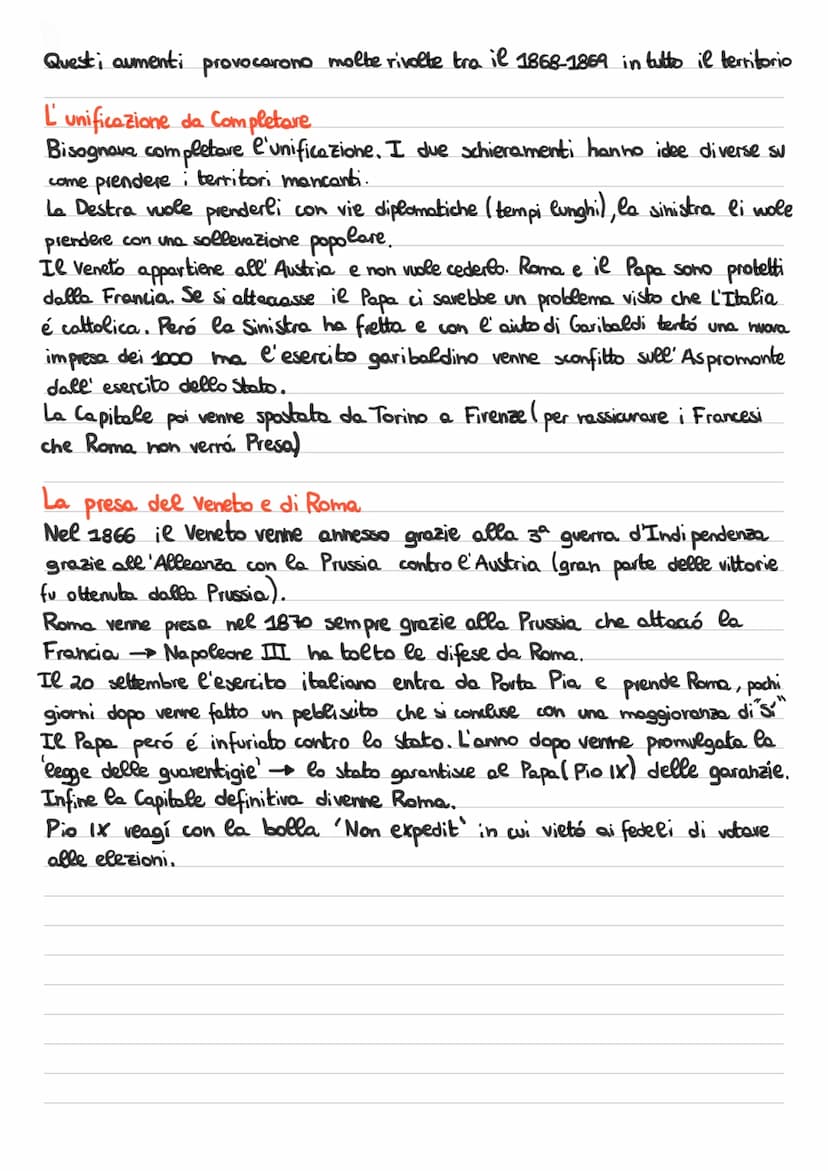 Questi aumenti provocarono molte rivolte tra il 1868-1869 in tutto il territorio
L'unificazione da Completare
Bisognava completare l'unificazione. I due schieramenti hanno idee diverse su
come prendere i territori mancanti.
La Destra vuole prenderli con vie diplomatiche (tempi lunghi), la sinistra li vuole
prendere con una sollevazione popolare.
Il Veneto appartiene all'Austria e non vuole cederlo. Roma e il Papa sono protetti
dalla Francia. Se si attaccasse il Papa ci sarebbe un problema visto che L'Italia
é cattolica. Peró la Sinistra ha fretta e con l'aiuto di Garibaldi tentó una nuova
impresa dei 1000 ma l'esercito garibaldino venne sconfitto sull'Aspromonte
dall'esercito dello Stato.
La Capitale poi venne spostata da Torino a Firenze (per rassicurare i Francesi
che Roma non verrá Presa)
La presa del Veneto e di Roma
Nel 1866 il Veneto venne annesso grazie alla 3ª guerra d'Indipendenza
grazie all'Alleanza con la Prussia contro l'Austria (gran parte delle vittorie
fu ottenuta dalla Prussia).
Roma venne presa nel 1870 sempre grazie alla Prussia che attaccó la
Francia → Napoleone III ha tolto le difese da Roma.
Il 20 settembre l'esercito italiano entra da Porta Pia e prende Roma, pochi
giorni dopo venne fatto un pebliscito che si concluse con una maggioranza di "Sí"
Il Papa peró é infuriato contro lo stato. L'anno dopo venne promulgata la
'legge delle guarentigie' → lo stato garantisce al Papa (Pio IX) delle garanzie.
Infine la Capitale definitiva divenne Roma.
Pio IX reagí con la bolla 'Non expedit' in cui vietó ai fedeli di votare
alle elezioni.